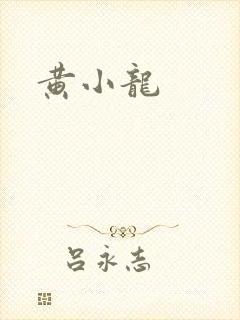 黄小龍
呂永志